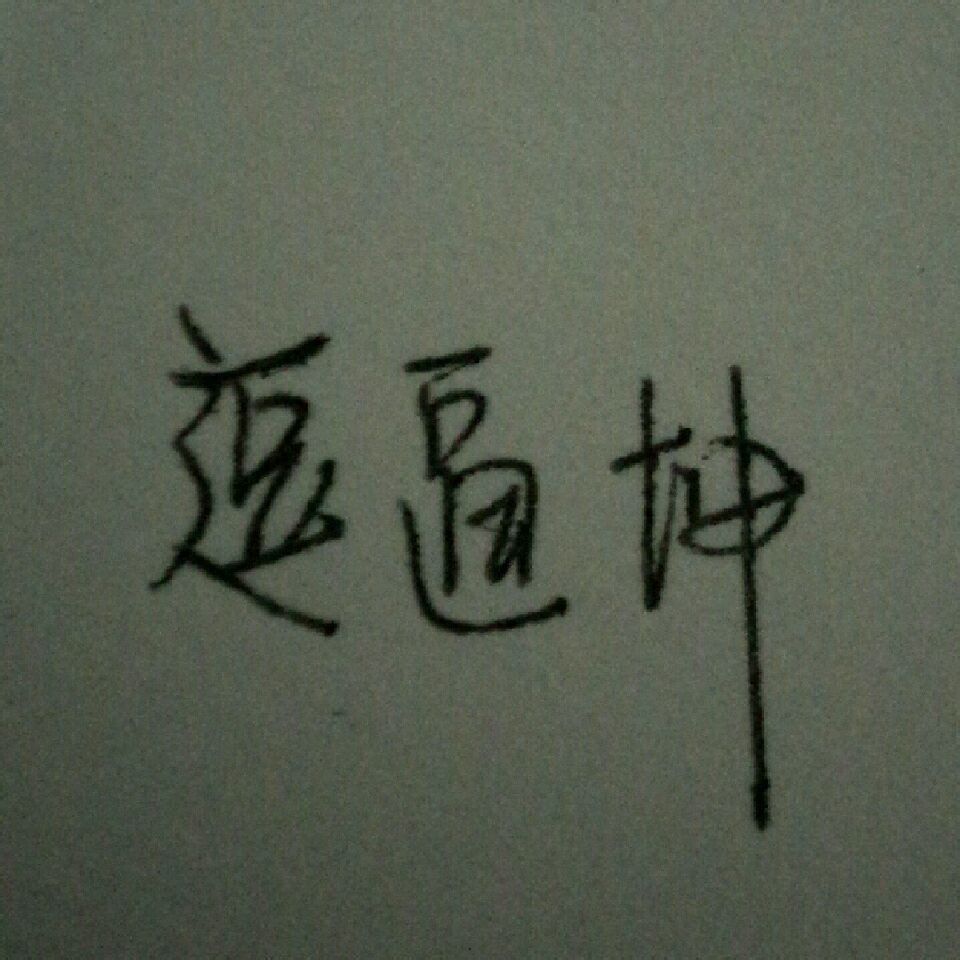 逗逼坤